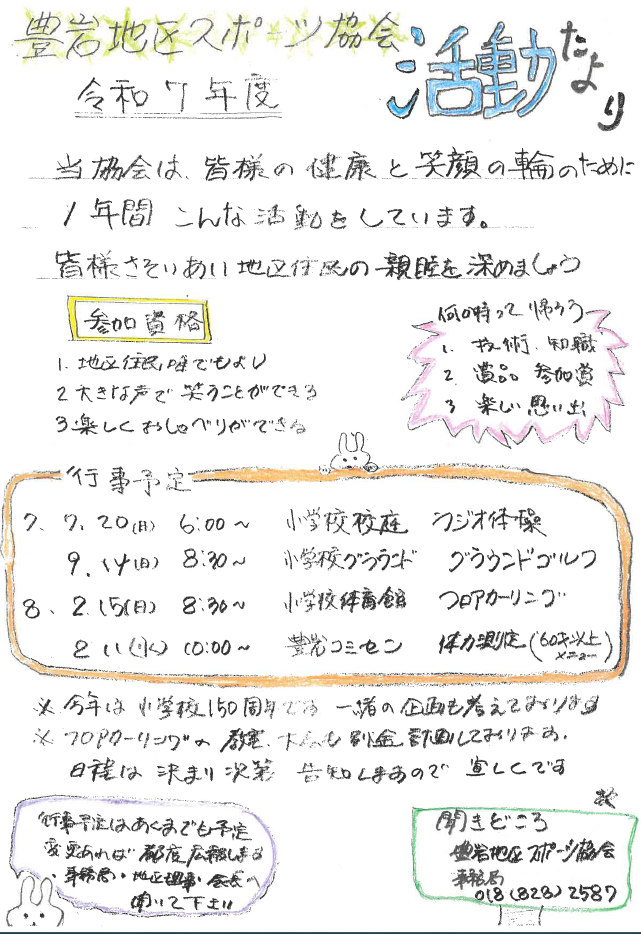 豊岩地区スポーツ協会
活動たより
令和7年度
当協会は、皆様の健康と笑顔の輪のために
1年間 こんな活動をしています。
皆様さそいあい地区住民の親睦を深めましょう
参加資格
1. 地区住民 誰でもよし
2 大きな声で笑うことができる
3 楽しくおしゃべりができる
何時って帰ろう
1. 技術、知職
2. 賞品 参加賞
3 楽しい思い出
行事予定
7. 7. 20(日) 6:00~ 小学校校庭 ラジオ体操
9. 14(日) 8:30~ 小学校グラウンド グラウンドゴルフ
8. 2. 15(日) 8:30~ 小学校体育館 フロアカーリング
2 11(水) 10:00~ 豊岩コミセン 体力測定(60才以上メニュー)
※ 今年は小学校150周年です 一緒の企画も考えております
※ フロアカーリングの教室、大会も 計画しております。
日程は決まり次第 告知しますので 宜しくです
行事予定はあくまでも予定
変更あれば 都度広報します
・事務局・地区理事・会長へ
聞いて下さい
聞きどころ
豊岩地区スポーツ協会
事務局
018(828)2587